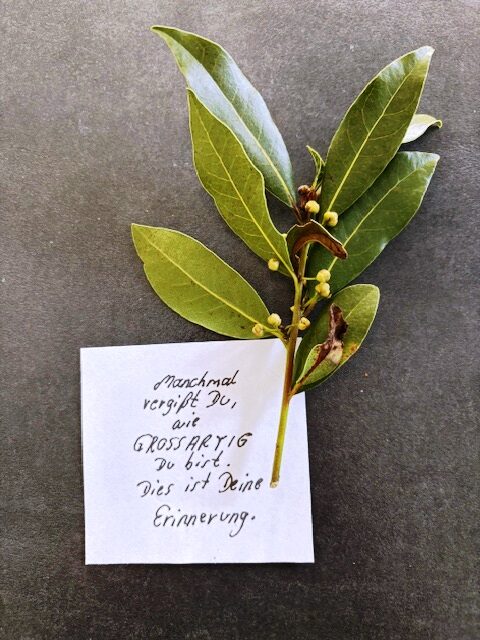 Manchmal
vergißt Du,
wie
GROSSARTIG
Du bist.
Dies ist Deine
Erinnerung.